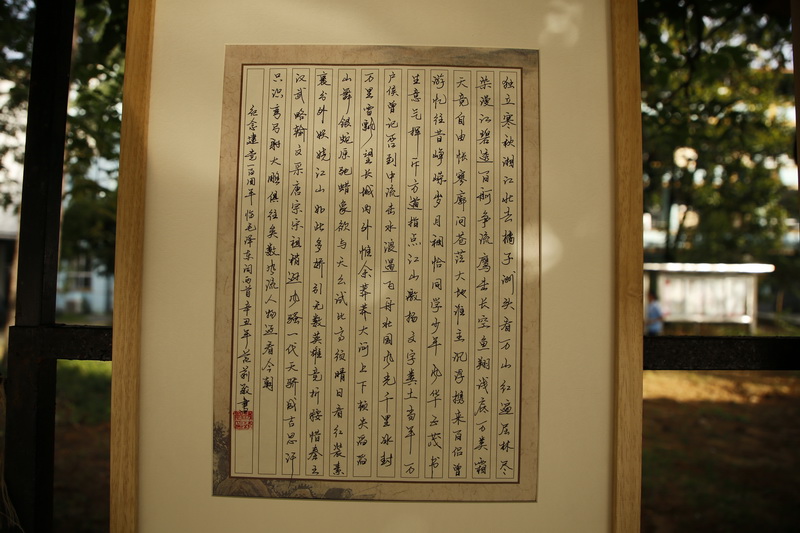 独立寒秋湘江北去橘子洲头看万山红遍层林尽
染漫江碧透百舸争流鹰击长空鱼翔浅底万类霜
天竞自由怅寥廓问苍茫大地谁主沉浮携来百侣曾
游忆往昔峥嵘岁月稠恰同学少年风华正茂书
生意气挥斥方遒指点江山激扬文字粪土当年万
户侯曾记否到中流击水浪遏飞舟北国风光千里冰封
万里雪飘望长城内外惟余莽莽大河上下顿失滔滔
山舞银蛇原驰蜡象欲与天公试比高须晴日看红装素
裹分外妖娆江山如此多娇引无数英雄竞折腰惜秦皇
汉武略输文采唐宗宋祖稍逊风骚一代天骄成吉思汗
只识弯弓射大雕俱往矣数风流人物还看今朝
纪念建党百周年 临毛泽东词两首辛丑年 书